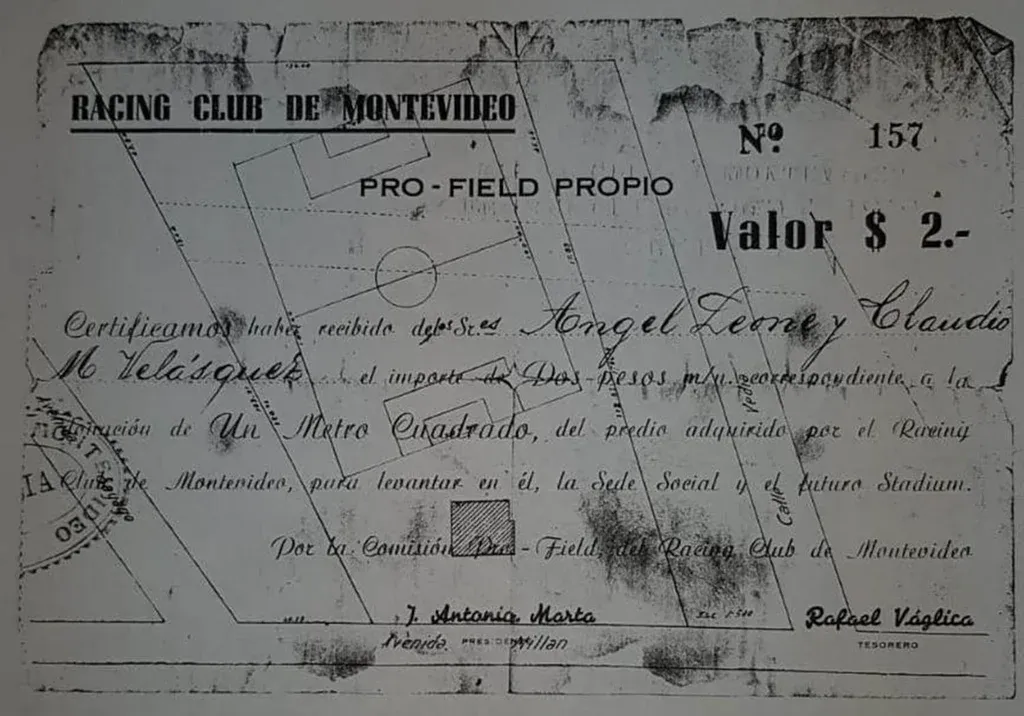 RACING CLUB DE MONTEVIDEO
Nº 157
PRO - FIELD PROPIO
Valor $ 2.-
Certificamos haber recibido de los Sres Angel Leone y Claudio
M Velásquez el importe de Dos pesos m/n. correspondiente a la
donación de Un Metro Cuadrado, del predio adquirido por el Racing
Club de Montevideo, para levantar en él, la Sede Social y el futuro Stadium.
Por la Comisión Pro - Field, del Racing Club de Montevideo
J. Antonio Marta
Rafael Váglica
Avenida Millan
PRESIDENTE
TESORERO
Calle